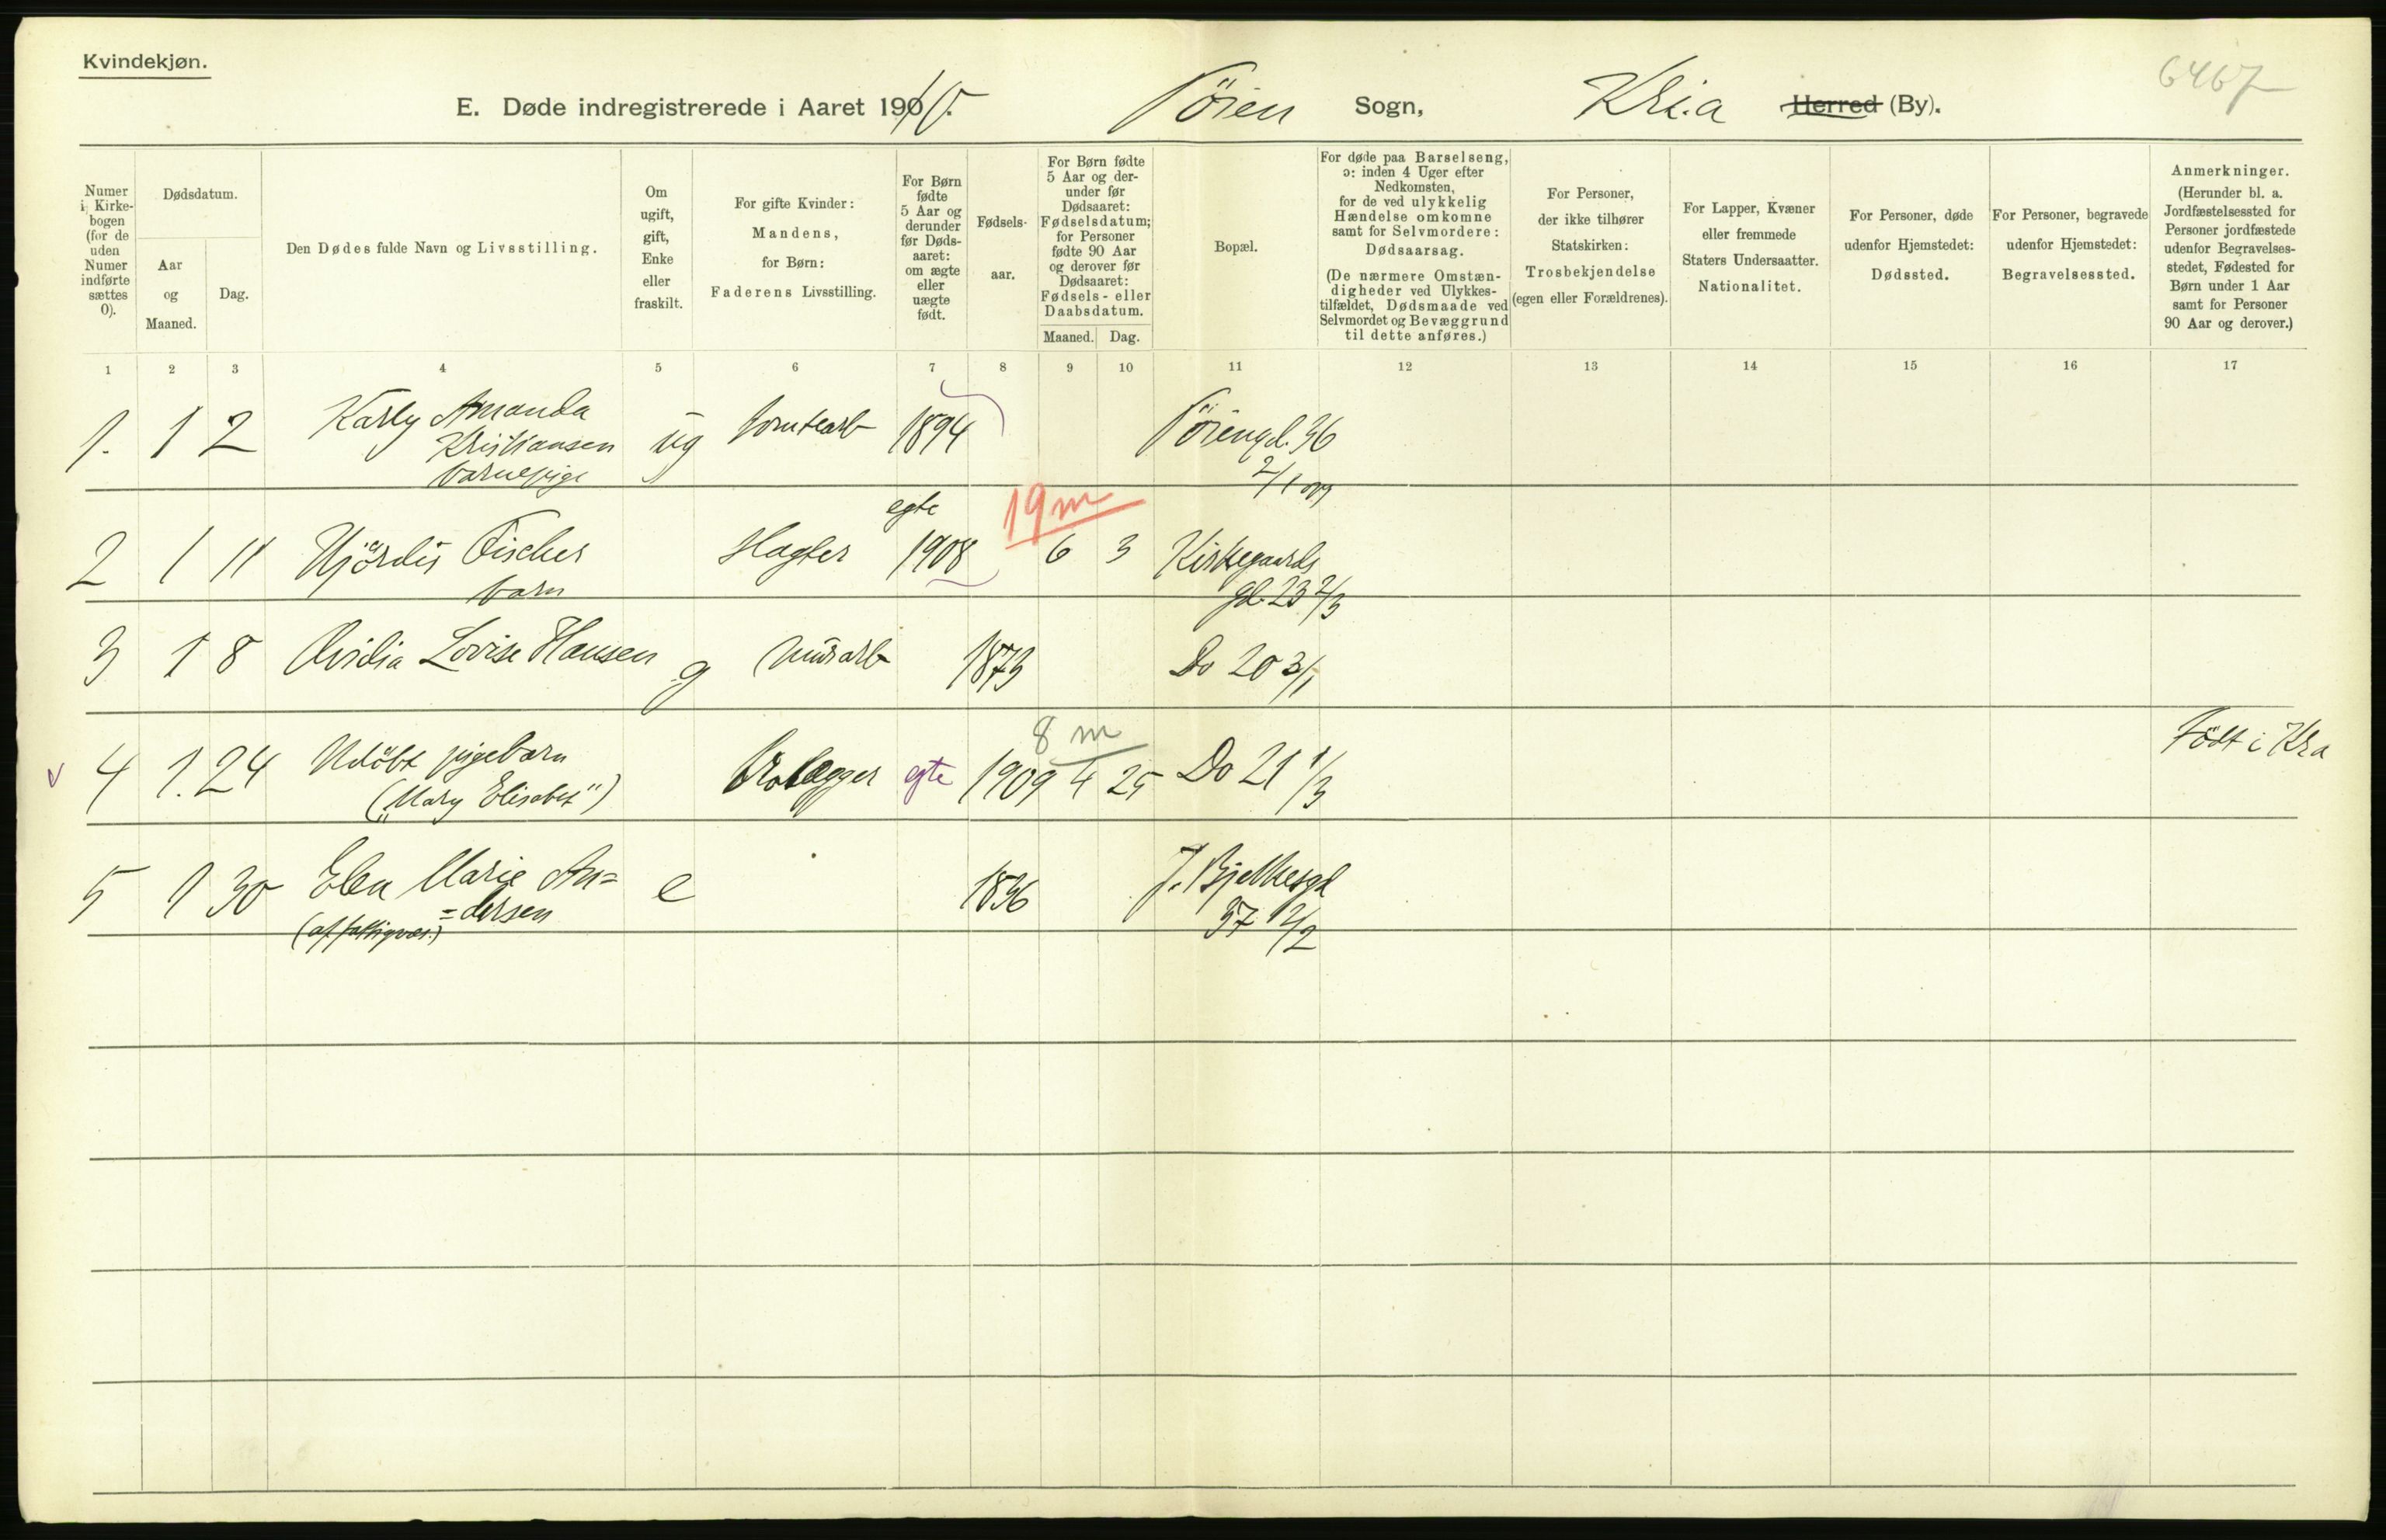 Kvindekjøn.
6467
E. Døde indregistrerede i Aaret 1910. Töien Sogn, Kr.a Herred (By).
Numer i Kirkebogen (for de uden Numer indførte sættes 0).
Dødsdatum.
Aar og Maaned.
Dag.
Den Dødes fulde Navn og Livsstilling.
Om ugift, gift, Enke eller fraskilt.
For gifte Kvinder: Mandens, for Børn: Faderens Livsstilling.
For Børn fødte 5 Aar og derunder før Dødsaaret: om ægte eller uægte født.
Fødselsaar.
For Børn fødte 5 Aar og derunder før Dødsaaret: Fødselsdatum; for Personer fødte 90 Aar og derover før Dødsaaret: Fødsels- eller Daabsdatum.
Maaned. Dag.
Bopæl.
For døde paa Barselseng, ɔ: inden 4 Uger efter Nedkomsten, for de ved ulykkelig Hændelse omkomne samt for Selvmordere: Dødsaarsag.
(De nærmere Omstændigheder ved Ulykkestilfældet, Dødsmaade ved Selvmordet og Bevæggrund til dette anføres.)
For Personer, der ikke tilhører Statskirken: Trosbekjendelse (egen eller Forældrenes).
For Lapper, Kvæner eller fremmede Staters Undersaatter. Nationalitet.
For Personer, døde udenfor Hjemstedet: Dødssted.
For Personer, begravede udenfor Hjemstedet: Begravelsessted.
Anmerkninger.
(Herunder bl. a. Jordfæstelsessted for Personer jordfæstede udenfor Begravelsesstedet, Fødested for Børn under 1 Aar samt for Personer 90 Aar og derover.)
1 2 3 4 5 6 7 8 9 10 11 12 13 14 15 16 17
1. 1 2 Karly Amanda Kristiansen ug tomtearb 1894 Töiengd. 36
barnepige 2/1 og
egte 19 m
2 1 11 Hjördis Fischer Slagter 1908 6 3 Kirkegaards
barn gd. 23 2/3
3 1 8 Ovidia Lovise Hansen g Murarb 1873 Do 20 3/1
8 m Födt i Kra
v 4 1. 24 Udöbt pigebarn Brolægger egte 1909 4 25 Do 21 1/3
("Mary Elisabet")
5 1 30 Elen Marie An= e 1836 J. Bjelkesgd
=dersen
(af fattigvæs.) 37 12/2